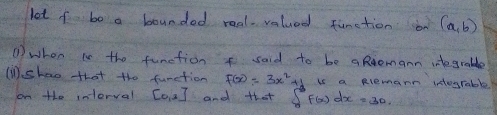 let f be a bounded real-valued function on (a,b)
(i) when is the function f said to be a Riemann integrable
(ii) show that the function f(x) = 3x²+1 is a Riemann integrable
on the interval [0,3] and that ∫ f(x) dx = 30.